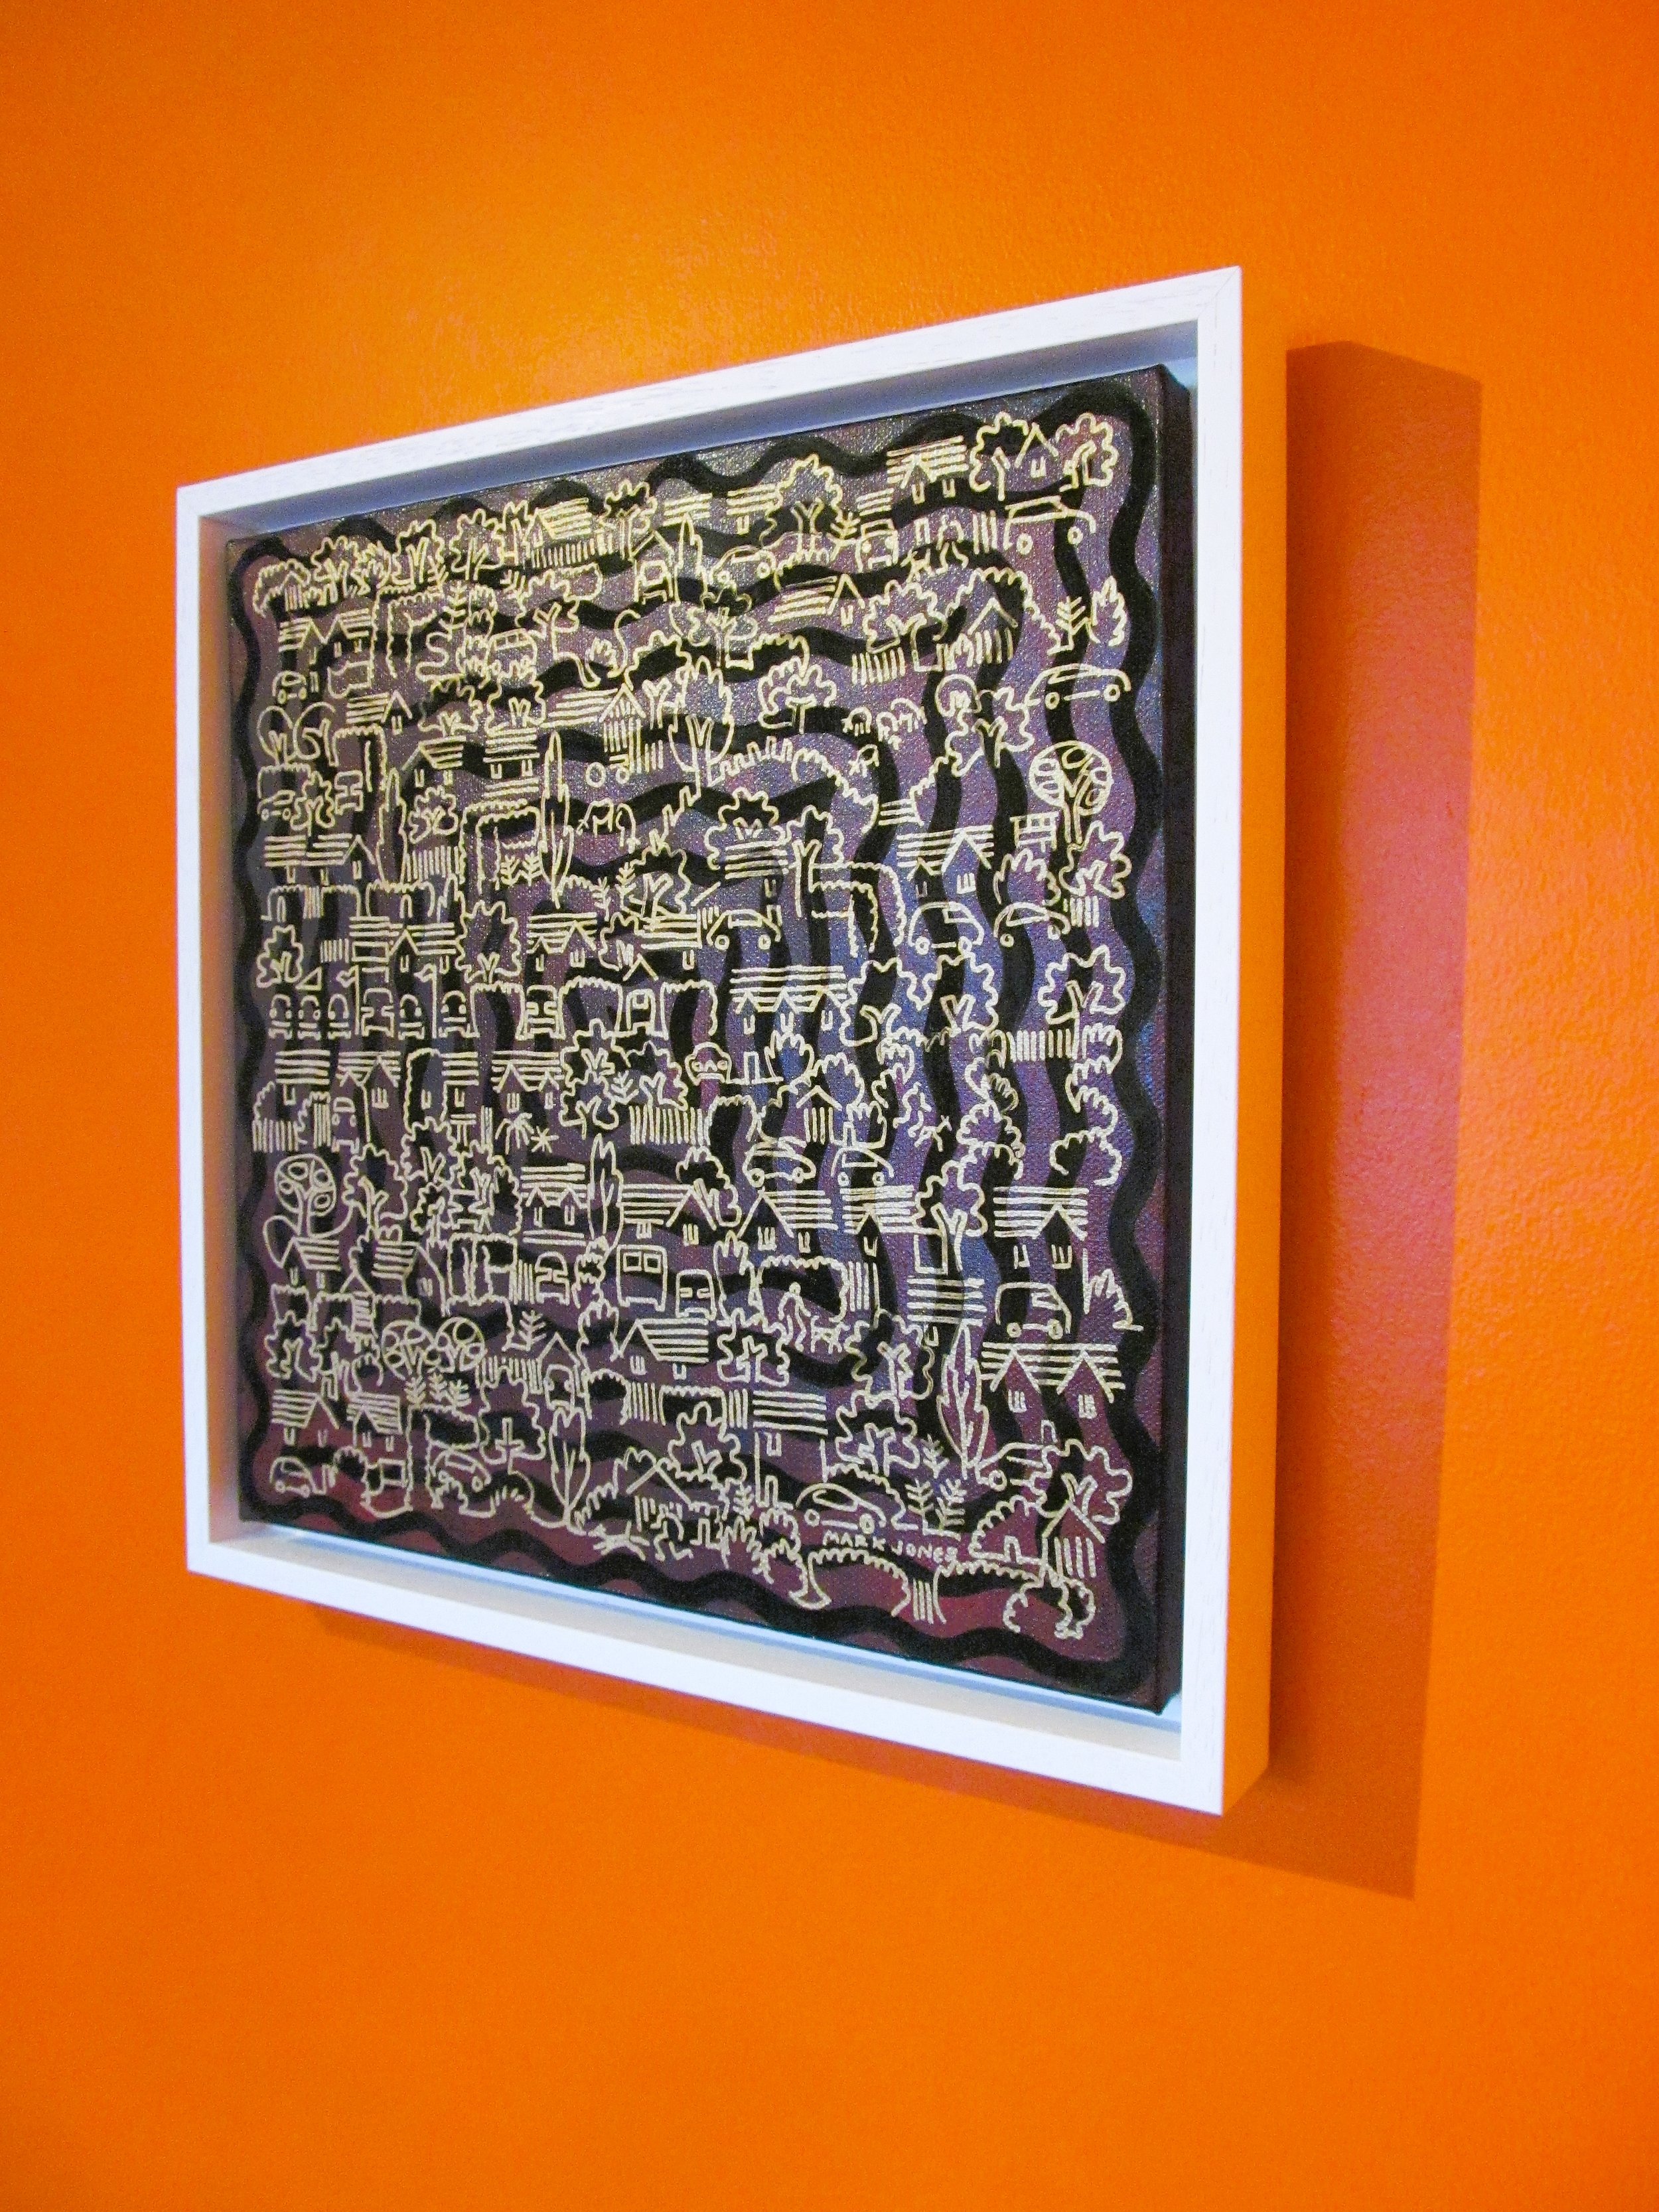 MARK JONES